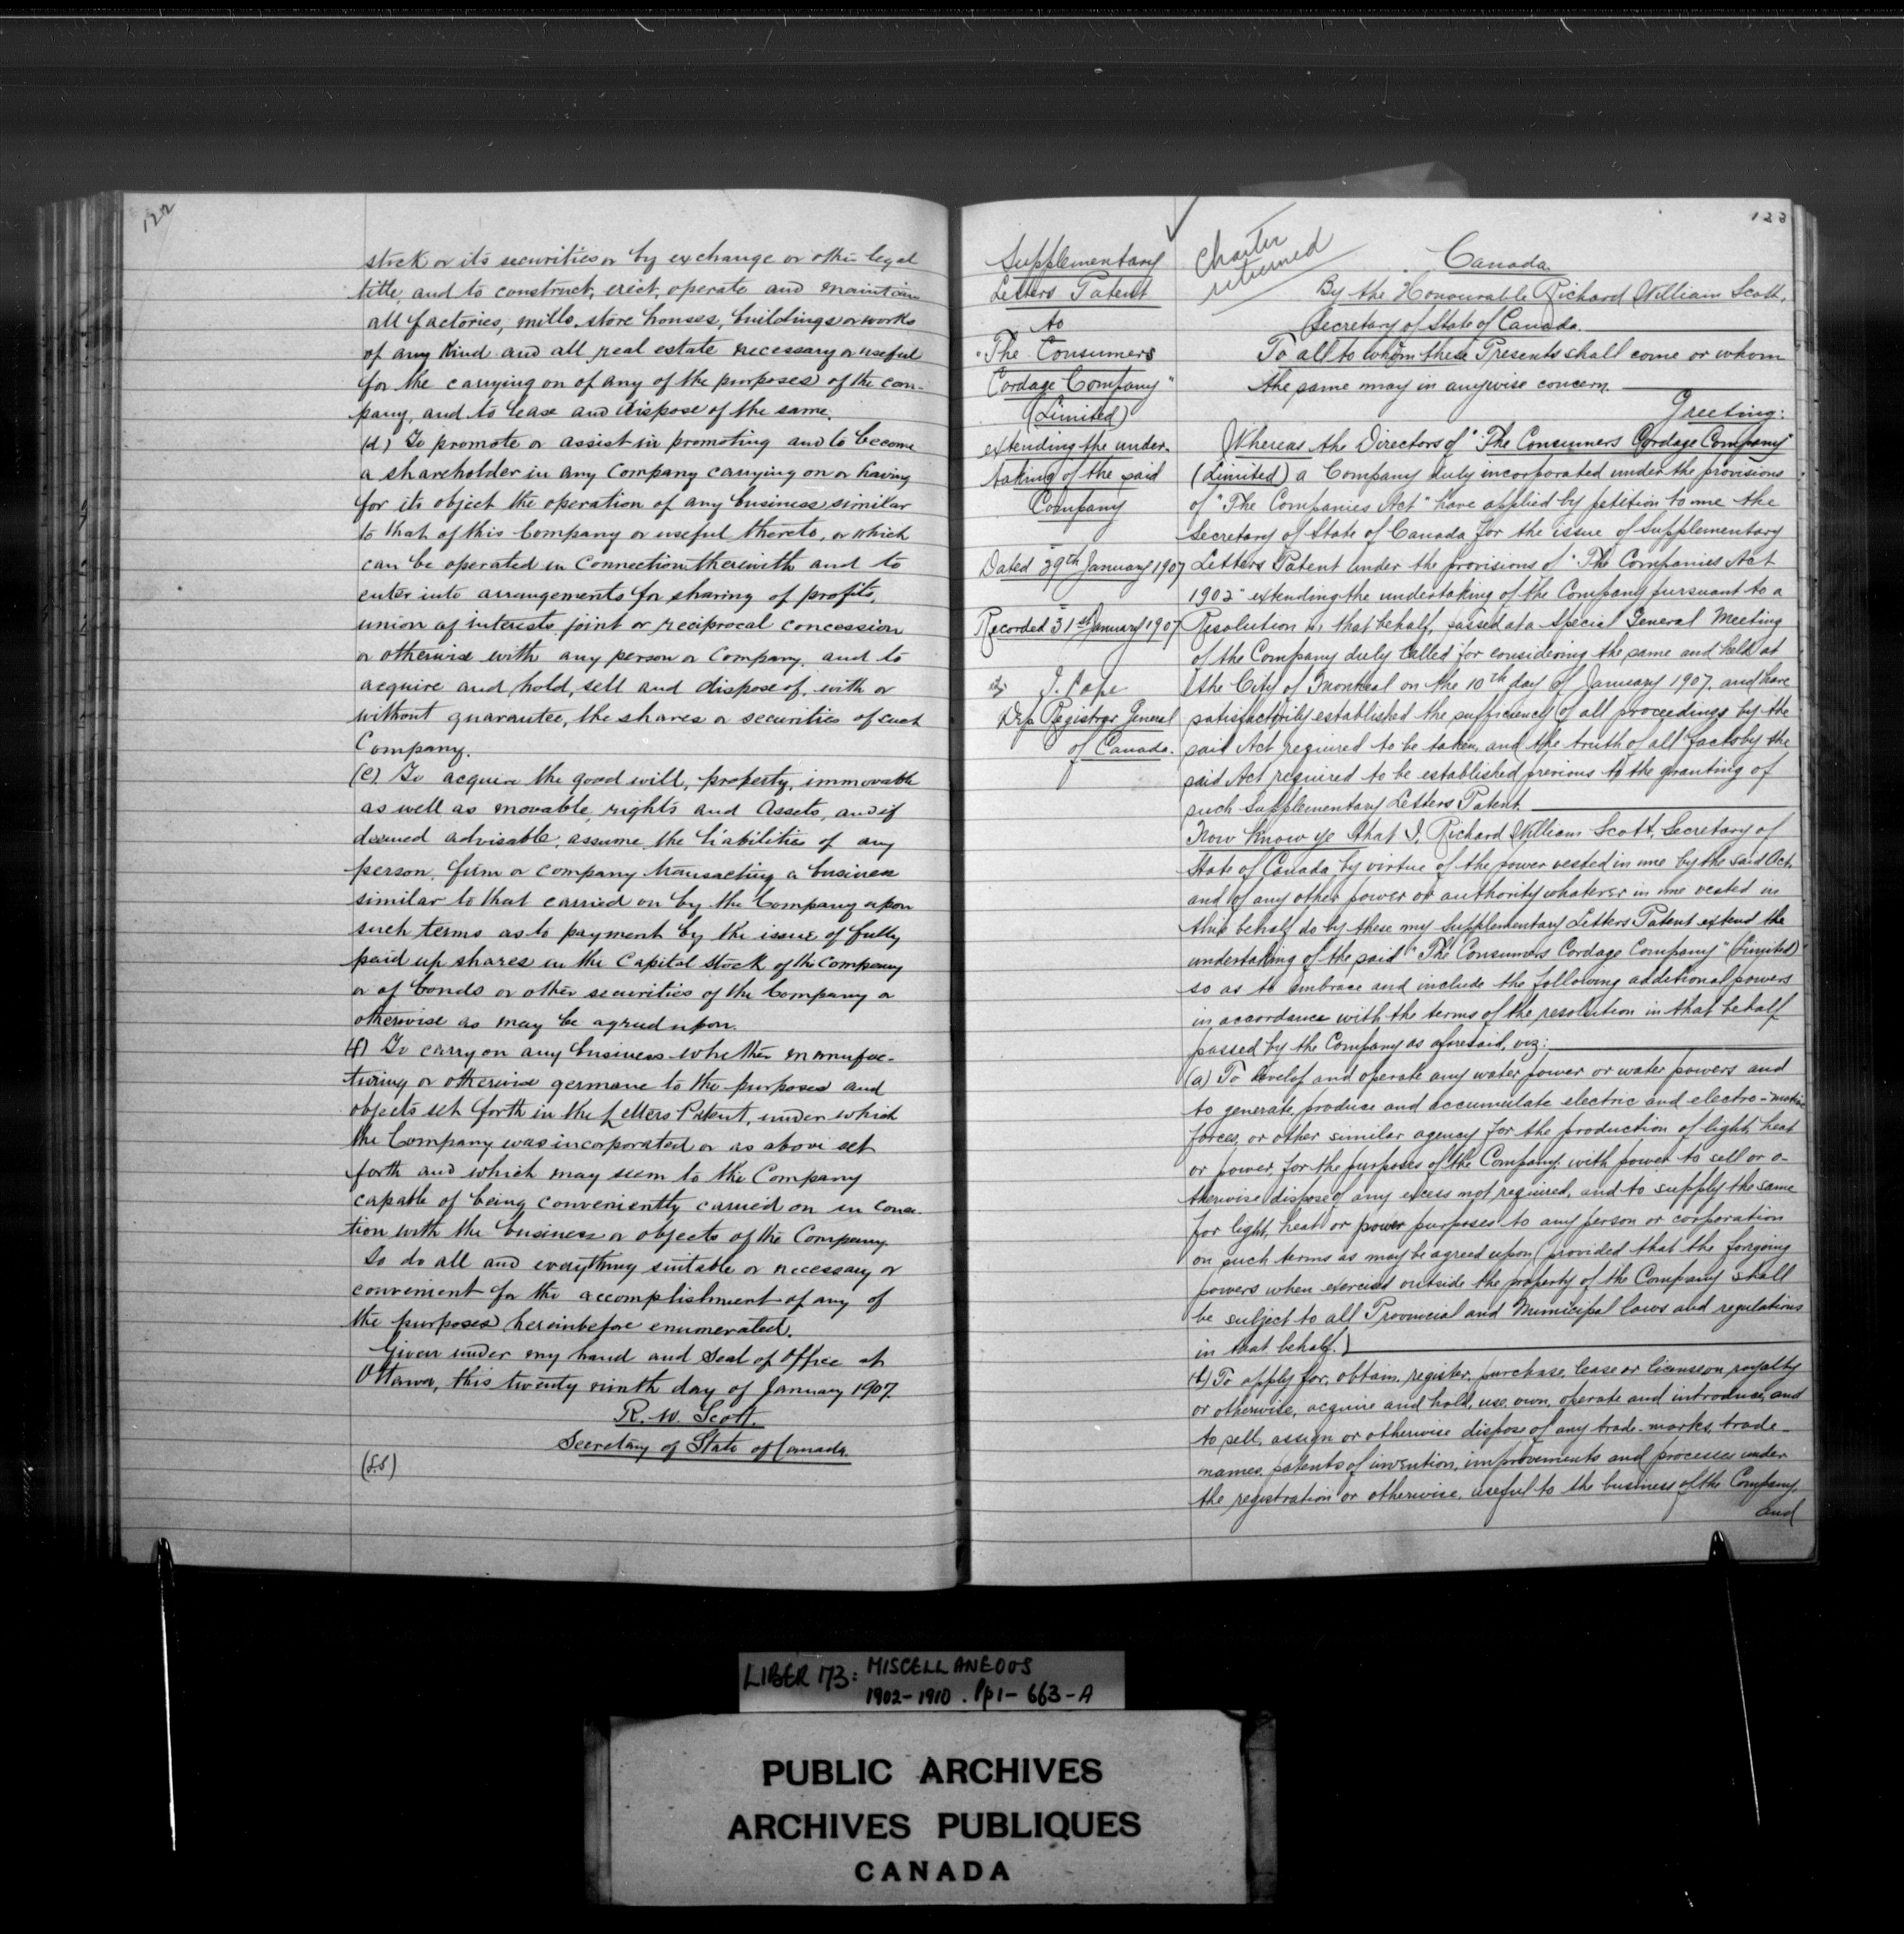 122
stock or its securities or by exchange or other legal
title, and to construct, erect, operate and maintain
all factories, mills, store houses, buildings or works
of any kind and all real estate necessary or useful
for the carrying on of any of the purposes of the com-
pany, and to lease and dispose of the same.
(d) To promote or assist in promoting and to become
a shareholder in any Company carrying on or having
for its object the operation of any business similar
to that of this Company or useful thereto, or which
can be operated in connection therewith and to
enter into arrangements for sharing of profits,
union of interests, joint or reciprocal concession
or otherwise with any person or Company, and to
acquire and hold, sell and dispose of, with or
without guarantee, the shares or securities of such
Company.
(e) To acquire the good will, property, immovable
as well as movable, rights and Assets, and if
deemed advisable, assume the liabilities of any
person, firm or company transacting a business
similar to that carried on by the Company upon
such terms as to payment by the issue of fully
paid up shares in the Capital stock of the Company
or of bonds or other securities of the Company or
otherwise as may be agreed upon.
(f) To carry on any business whether manufac-
turing or otherwise germane to the purposes and
objects set forth in the Letters Patent, under which
the Company was incorporated or as above set
forth and which may seem to the Company
capable of being conveniently carried on in connec-
tion with the business or objects of the Company.
To do all and everything suitable or necessary or
convenient for the accomplishment of any of
the purposes hereinbefore enumerated.
Given under my hand and Seal of Office at
Ottawa, this twenty ninth day of January 1907
R. W. Scott.
Secretary of State of Canada.
(L.S.)
123
Charter
returned
Supplementary
Letters Patent
to
"The Consumers
Cordage Company"
(Limited)
extending the under-
taking of the said
Company
Dated 29th January 1907
Recorded 31st January 1907
J. Cape
Dep Registrar General
of Canada.
Canada.
By the Honourable Richard William Scott,
Secretary of State of Canada.
To all to whom these Presents shall come or whom
the same may in anywise concern.
Greeting:
Whereas the Directors of "The Consumers Cordage Company"
(Limited) a Company duly incorporated under the provisions
of "The Companies Act" have applied by petition to me the
Secretary of State of Canada for the issue of Supplementary
Letters Patent under the provisions of "The Companies Act
1902" extending the undertaking of the Company pursuant to a
Resolution in that behalf, passed at a Special General Meeting
of the Company duly called for considering the same and held at
the City of Montreal on the 10th day of January 1907, and have
satisfactorily established the sufficiency of all proceedings by the
said Act required to be taken, and the truth of all facts by the
said Act required to be established previous to the granting of
such Supplementary Letters Patent
Now Know ye that I, Richard William Scott, Secretary of
State of Canada by virtue of the power vested in me by the said Act
and of any other power or authority whatever in me vested in
this behalf do by these my Supplementary Letters Patent extend the
undertaking of the said "The Consumers Cordage Company" (Limited)
so as to embrace and include the following additional powers
in accordance with the terms of the resolution in that behalf
passed by the Company as aforesaid, viz:
(a) To develop and operate any water power or water powers and
to generate, produce and accumulate electric and electro-motive
forces, or other similar agency for the production of light, heat
or power, for the purposes of the Company, with power to sell or o-
therwise dispose of any excess not required, and to supply the same
for light, heat or power purposes to any person or corporation
on such terms as may be agreed upon (provided that the forgoing
powers when exercised outside the property of the Company shall
be subject to all Provincial and Municipal laws and regulations
in that behalf.)
(b) To apply for, obtain, register, purchase, lease or license on royalty
or otherwise, acquire and hold, use, own, operate and introduce, and
to sell, assign or otherwise dispose of any trade-marks, trade-
names, patents of invention, improvements and processes under
the registration or otherwise, useful to the business of the Company,
and
LIBER 173: MISCELLANEOUS
1902-1910. Pp1-663-A
PUBLIC ARCHIVES
ARCHIVES PUBLIQUES
CANADA